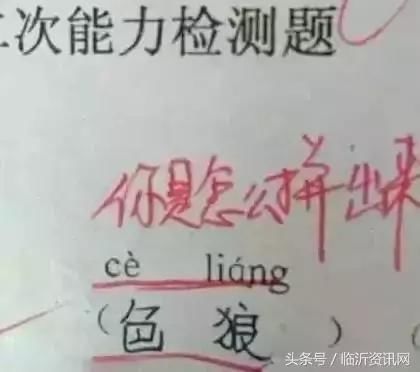 二次能力检测题
你是怎么拼出来
cè liáng
（色 狼 ）（
头条号 / 临沂资讯网